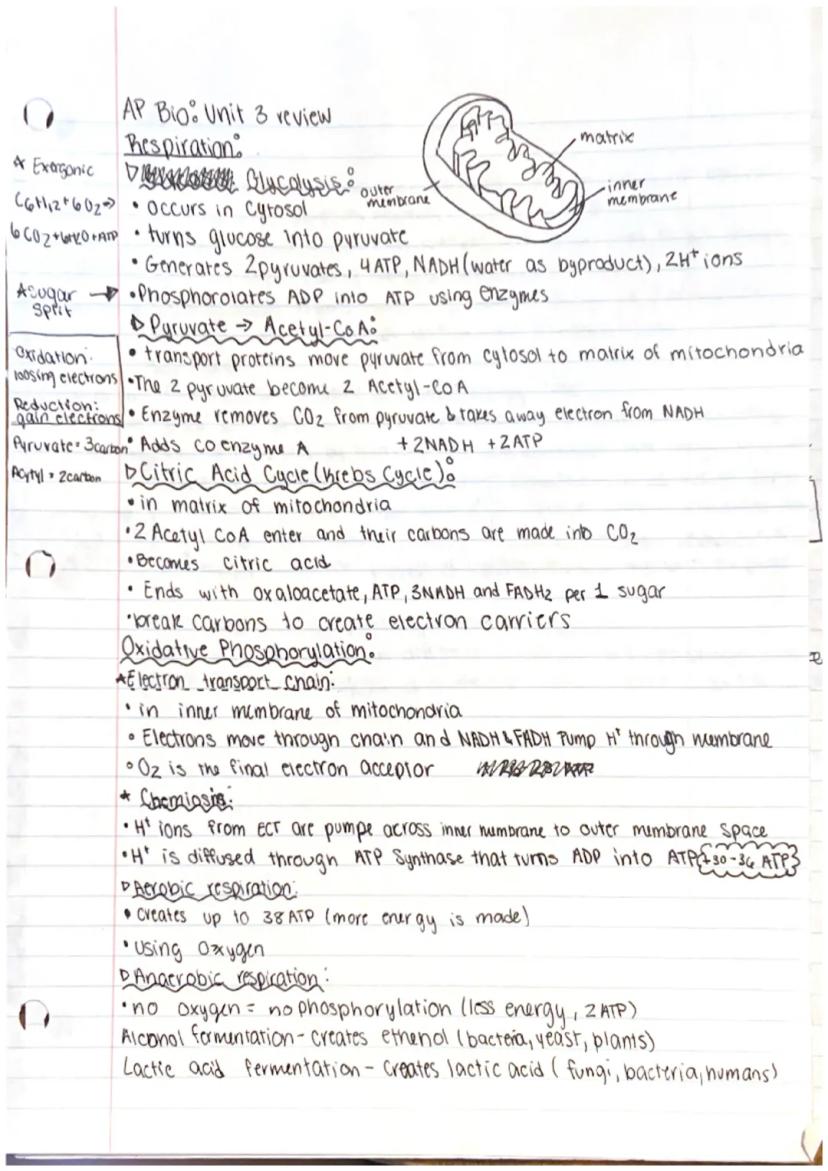 AP Bio: Unit 3 review
Respiration:
matrix
inner
membrane
outer
membrane
* Exergonic
C6H12+6O2→
6CO2+6H2O+ATP
*Sugar →
split
Oxidation:
loosing electrons
Reduction:
gain electrons
Pyruvate = 3carbon
Acytyl = 2carbon
▷ Glycolysis:
• occurs in Cytosol
• turns glucose into pyruvate
• Generates 2pyruvates, 4 ATP, NADH (water as byproduct), 2H⁺ ions
• Phosphorolates ADP into ATP using enzymes
▷ Pyruvate → Acetyl-CoA:
• transport proteins move pyruvate from cytosol to matrix of mitochondria
• The 2 pyruvate become 2 Acetyl-CoA
• Enzyme removes CO2 from pyruvate & takes away electron from NADH
• Adds coenzyme A +2NADH +2ATP
▷ Citric Acid Cycle (Krebs Cycle):
• in matrix of mitochondria
• 2 Acetyl CoA enter and their carbons are made into CO2
• Becomes citric acid
• Ends with oxaloacetate, ATP, 3NADH and FADH2 per 1 sugar
• break carbons to create electron carriers
Oxidative Phosphorylation:
*Electron transport chain:
• in inner membrane of mitochondria
• Electrons move through chain and NADH & FADH Pump H⁺ through membrane
• O2 is the final electron acceptor
* Chemiosis:
• H⁺ ions from ECT are pumpe across inner membrane to outer membrane space
• H⁺ is diffused through ATP Synthase that turns ADP into ATP +30-36 ATP
▷ Aerobic respiration:
• creates up to 38 ATP (more energy is made)
• using oxygen
▷ Anaerobic respiration:
• no oxygen = no phosphorylation (less energy, 2 ATP)
Alcohol fermentation - creates ethenol (bacteria, yeast, plants)
Lactic acid fermentation - creates lactic acid (fungi, bacteria, humans)